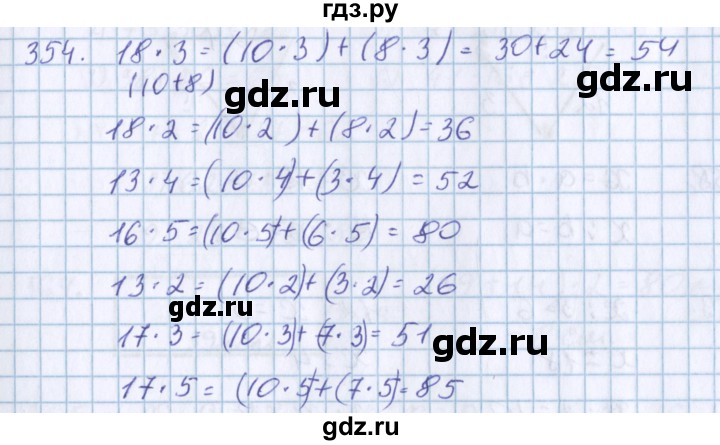 гдз.ру
354. 18 · 3 = (10 · 3) + (8 · 3) = 30 + 24 = 54
(10+8)
gdz.ru
gdz.ru
18 · 2 = (10 · 2) + (8 · 2) = 36
13 · 4 = (10 · 4) + (3 · 4) = 52
16 · 5 = (10 · 5) + (6 · 5) = 80
13 · 2 = (10 · 2) + (3 · 2) = 26
gdz.ru
17 · 3 = (10 · 3) + (7 · 3) = 51
gdz.ru
17 · 5 = (10 · 5) + (7 · 5) = 85
gdz.ru